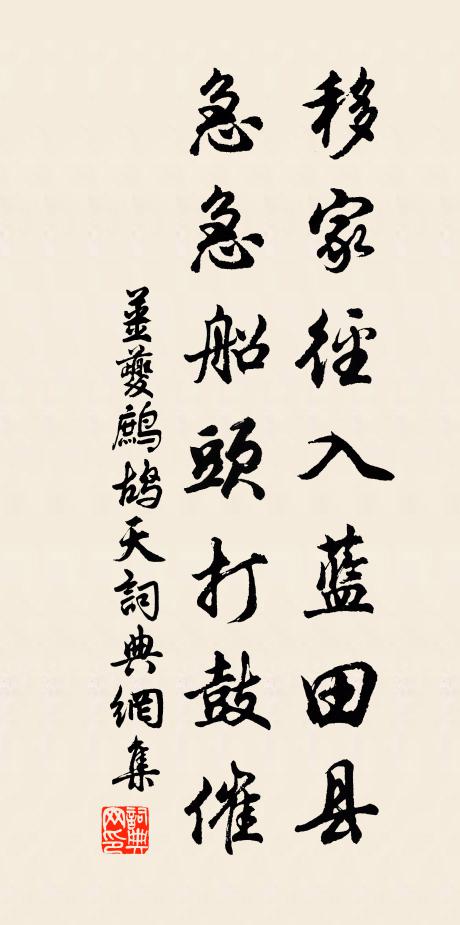 移家徑入藍田县
急急船頭打鼓催
姜夔鷓鴣天詞典網集
詞典網印